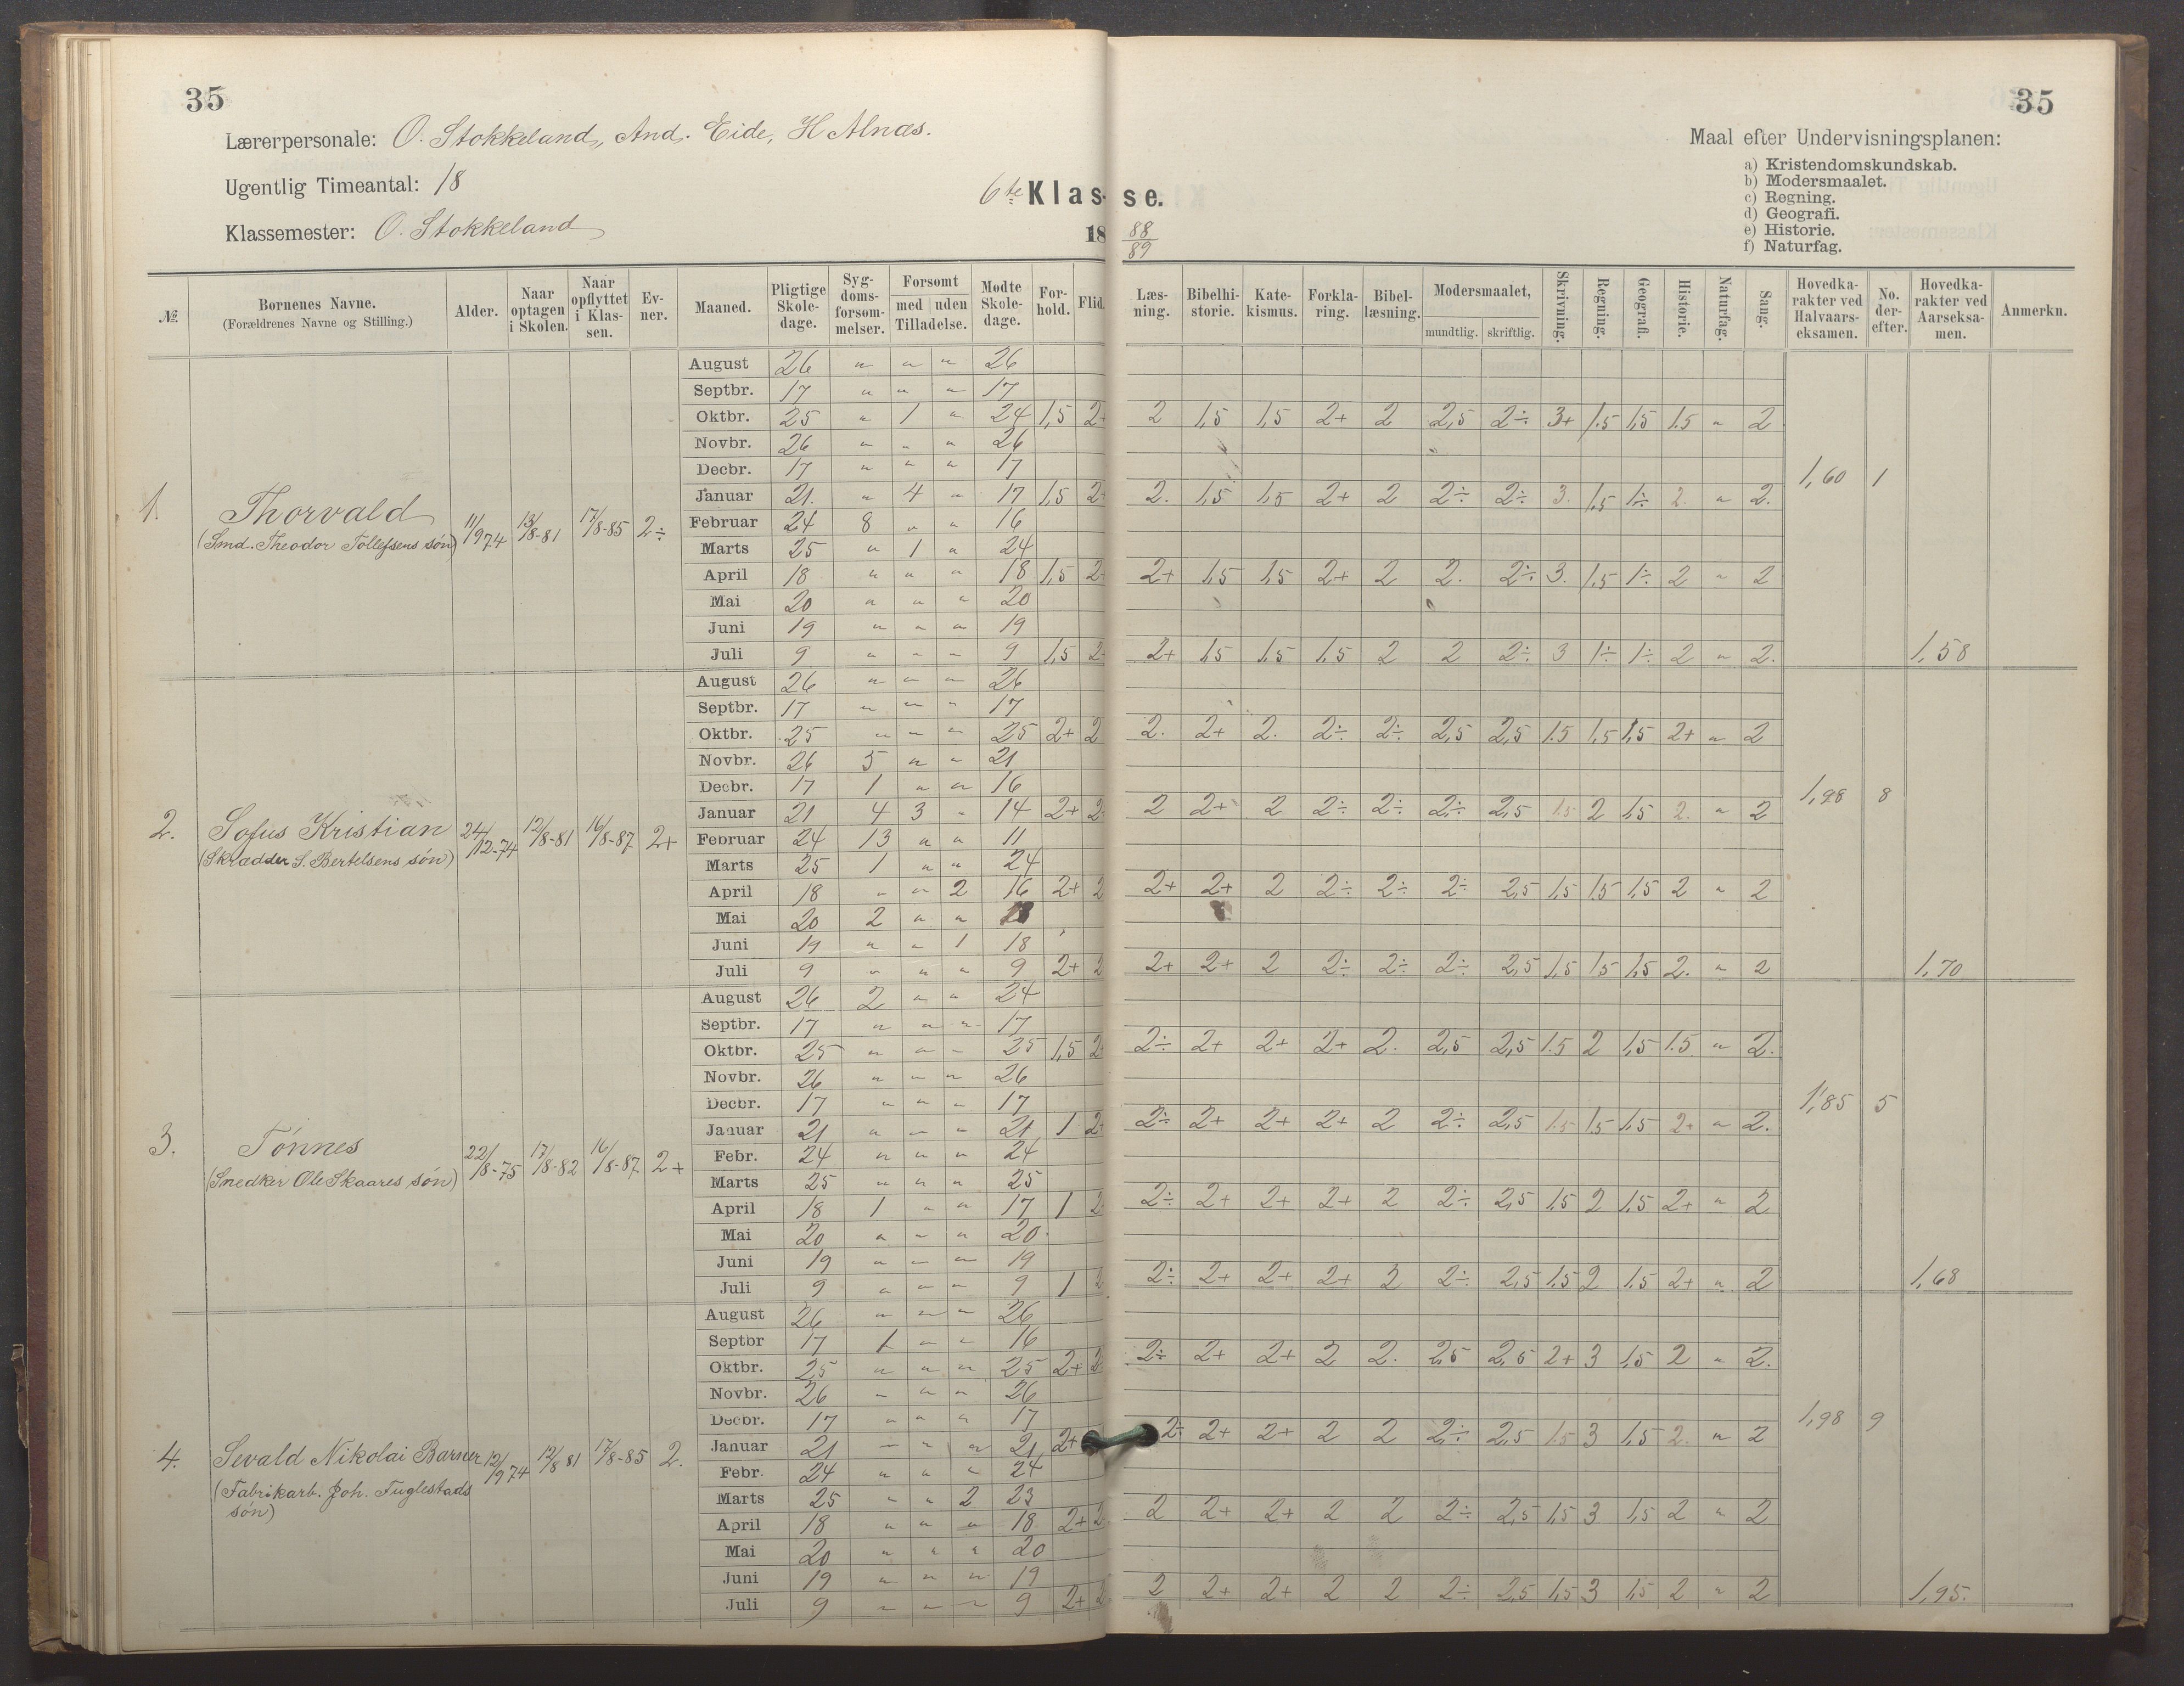 35
35
Lærerpersonale: O. Stokkeland, And. Eide, H Alnæs.
Ugentlig Timeantal: 18
Klassemester: O. Stokkeland
6te Klasse.
18 88/89
Maal efter Undervisningsplanen:
a) Kristendomskundskab.
b) Modersmaalet.
c) Regning.
d) Geografi.
e) Historie.
f) Naturfag.
№. Børnenes Navne. (Forældrenes Navne og Stilling.) Alder. Naar optagen i Skolen. Naar opflyttet i Klassen. Evner. Maaned. Pligtige Skoledage. Sygdomsforsømmelser. Forsømt med uden Tilladelse. Mødte Skoledage. Forhold. Flid. Læsning. Bibelhistorie. Katekismus. Forklaring. Bibellæsning. Modersmaalet, mundtlig. skriftlig. Skrivning. Regning. Geografi. Historie. Naturfag. Sang. Hovedkarakter ved Halvaarseksamen. No. derefter. Hovedkarakter ved Aarseksamen. Anmerkn.
1. Thorvald
(Smd. Theodor Tollefsens søn)
11/9 74 13/8-81 17/8-85 2÷
August 26 " " " 26
Septbr. 17 " " " 17
Oktbr. 25 " 1 " 24 1,5 2+ 2 1,5 1,5 2+ 2 2,5 2÷ 3+ 1.5 1,5 1.5 " 2
Novbr. 26 " " " 26
Decbr. 17 " " " 17
Januar 21. " 4 " 17 1,5 2+ 2. 1,5 1,5 2+ 2 2÷ 2÷ 3. 1,5 1÷ 2. " 2. 1,60 1
Februar 24 8 " " 16
Marts 25 " 1 " 24
April 18 " " " 18 1,5 2+ 2+ 1,5 1,5 2+ 2 2. 2÷ 3. 1,5 1÷ 2 " 2
Mai 20 " " " 20
Juni 19 " " " 19
Juli 9 " " " 9 1,5 2+ 2+ 1,5 1,5 1,5 2 2 2÷ 3 1÷ 1÷ 2 " 2. 1,58
2. Sofus Kristian
(Skrædder S. Bertelsens søn)
24/12-74 12/8-81 16/8-87 2+
August 26 " " " 26
Septbr. 17 " " " 17
Oktbr. 25 " " " 25 2+ 2 2. 2+ 2. 2÷ 2÷ 2,5 2,5 1.5 1,5 1,5 2+ " 2
Novbr. 26 5 " " 21
Decbr. 17 1 " " 16
Januar 21 4 3 " 14 2+ 2 2 2+ 2 2÷ 2÷ 2÷ 2,5 1.5 2 1,5 2. " 2 1,98 8
Februar 24 13 " " 11
Marts 25 1 " " 24
April 18 " " 2 16 2+ 2 2+ 2+ 2 2÷ 2÷ 2÷ 2,5 1,5 1,5 1,5 2 " 2
Mai 20 2 " " 18
Juni 19 " " 1 18
Juli 9 " " " 9 2+ 2 2+ 2+ 2 2÷ 2÷ 2÷ 2,5 1,5 1,5 1,5 2. " 2 1,70
3. Tønnes
(Snedker Ole Skaares søn)
22/8-75 17/8-82 16/8-87 2+
August 26 2 " " 24
Septbr. 17 " " " 17
Oktbr. 25 " " " 25 1,5 2+ 2÷ 2+ 2+ 2+ 2. 2,5 2,5 1.5 2 1,5 1.5 " 2.
Novbr. 26 " " " 26
Decbr. 17 " " " 17
Januar 21 " " " 21 1 2+ 2÷ 2+ 2+ 2+ 2 2÷ 2,5 1.5 1,5 1,5 2+ " 2. 1,85 5
Febr. 24 " " " 24
Marts 25 " " " 25
April 18 1 " " 17 1 2 2÷ 2+ 2+ 2+ 2 2÷ 2,5 1,5 2 1,5 2+ " 2
Mai 20 " " " 20
Juni 19 " " " 19
Juli 9 " " " 9 1 2 2÷ 2+ 2+ 2+ 2 2÷ 2,5 1,5 2 1,5 2+ " 2 1,68
4. Sevald Nikolai Barner
(Fabrikarb. Joh. Fuglestads
søn)
12/9 74 12/8 81 17/8-85 2.
August 26 " " " 26
Septbr 17 1 " " 16
Oktbr. 25 " " " 25 2+ 2 2÷ 2+ 2+ 2 2. 2,5 2,5 2+ 3 1,5 2 " 2.
Novbr. 26 " " " 26
Decbr. 17 " " " 17
Januar 21 " " " 21 2+ 2÷ 2+ 2+ 2 2 2÷ 2,5 1.5 3 1,5 2. " 2 1,98 9
Febr. 24 " " " 24
Marts 25 " " 2 23
April 18 " " " 18 2+ 2 2 2+ 2+ 2 2 2÷ 2,5 1,5 3 1,5 2 " 2
Mai 20 " " " 20
Juni 19 " " " 19
Juli 9 " " " 9 2+ 2 2 2+ 2+ 2 2 2÷ 2,5 1,5 3 1,5 2 " 2 1,95.